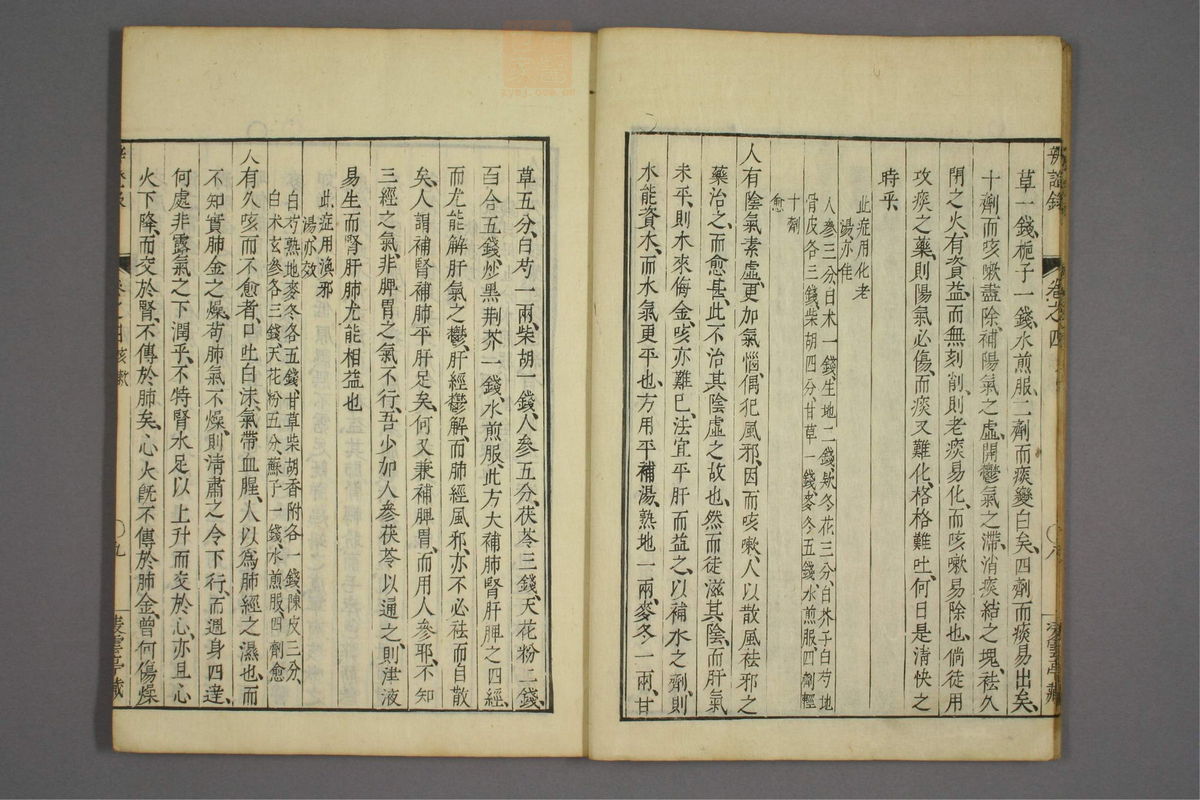 辨證錄 卷之四 凌雲亭藏
草一錢、梔子一錢、水煎服、二劑而痰變白矣、四劑而痰易出矣、
十劑而咳嗽盡除、補陽氣之虛、開鬱氣之滯、消痰結之塊、祛久
閉之火、有資益而無刻削、則老痰易化、而咳嗽易除也、倘徒用
攻痰之藥、則陽氣必傷、而痰又難化、格格難吐、何日是清快之
時乎、
此症用化老
湯亦佳
人參三分白术一錢生地二錢欵冬花三分白芥子白芍地
骨皮各三錢柴胡四分甘草一錢麥冬五錢水煎服四劑輕
十劑
愈
人有陰氣素虛、更加氣惱、偶犯風邪、因而咳嗽、人以散風祛邪之
藥治之而愈甚、此不治其陰虛之故也、然而徒滋其陰、而肝氣
未平、則木來侮金、咳亦難已、法宜平肝而益之、以補水之劑、則
水能資木、而水氣更平也、方用平補湯、熟地一兩、麥冬一兩、甘
草五分、白芍一兩、柴胡一錢、人參五分、茯苓三錢、天花粉二錢、
百合五錢、炒黑荆芥一錢、水煎服、此方大補肺腎肝脾之四經、
而尤能解肝氣之鬱、肝經鬱解、而肺經風邪、亦不必祛而自散
矣、人謂補腎補肺平肝足矣、何又兼補脾胃、而用人參耶、不知
三經之氣、非脾胃之氣不行、吾少加人參茯苓以通之、則津液
易生、而腎肝肺尤能相益也
此症用渙邪
湯亦效
白芍熟地麥冬各五錢甘草柴胡香附各一錢陳皮三分
白术玄參各三錢天花粉五分蘇子一錢水煎服四劑愈
人有久咳而不愈者、口吐白沫、氣帶血腥、人以爲肺經之濕也、而
不知實肺金之燥、苟肺氣不燥、則清肅之令下行、而週身四達、
何處非露氣之下潤乎、不特腎水足以上升而交於心、亦且心
火下降、而交於腎、不傳於肺矣、心火旣不傳於肺金、曾何傷燥
凌雲亭藏